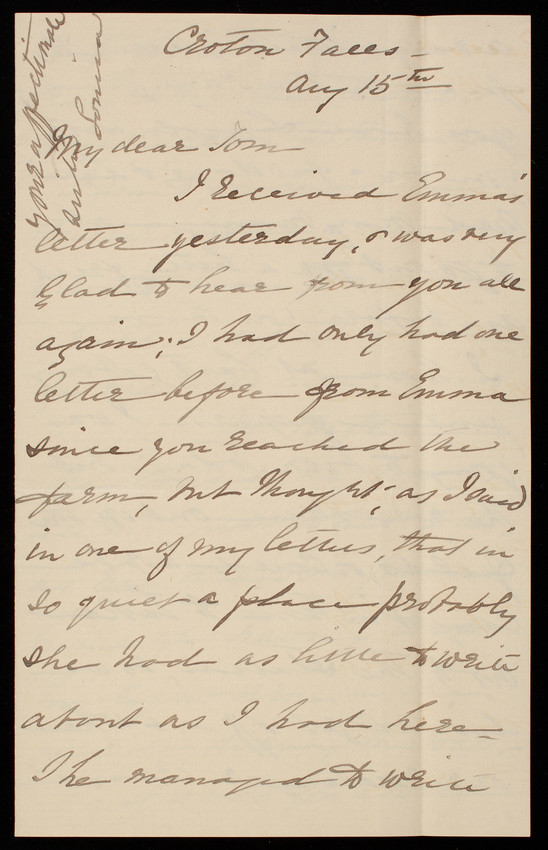 Croton Falls –
Aug 15th
My dear Tom
I received Emma's
letter yesterday, & was very
glad to hear from you all
again; I had only had one
letter before from Emma
since you reached the
farm, but thought, as I said
in one of my letters, that in
so quiet a place probably
she had as little to write
about as I had here –
She managed to write
your affectionate
sister Louisa